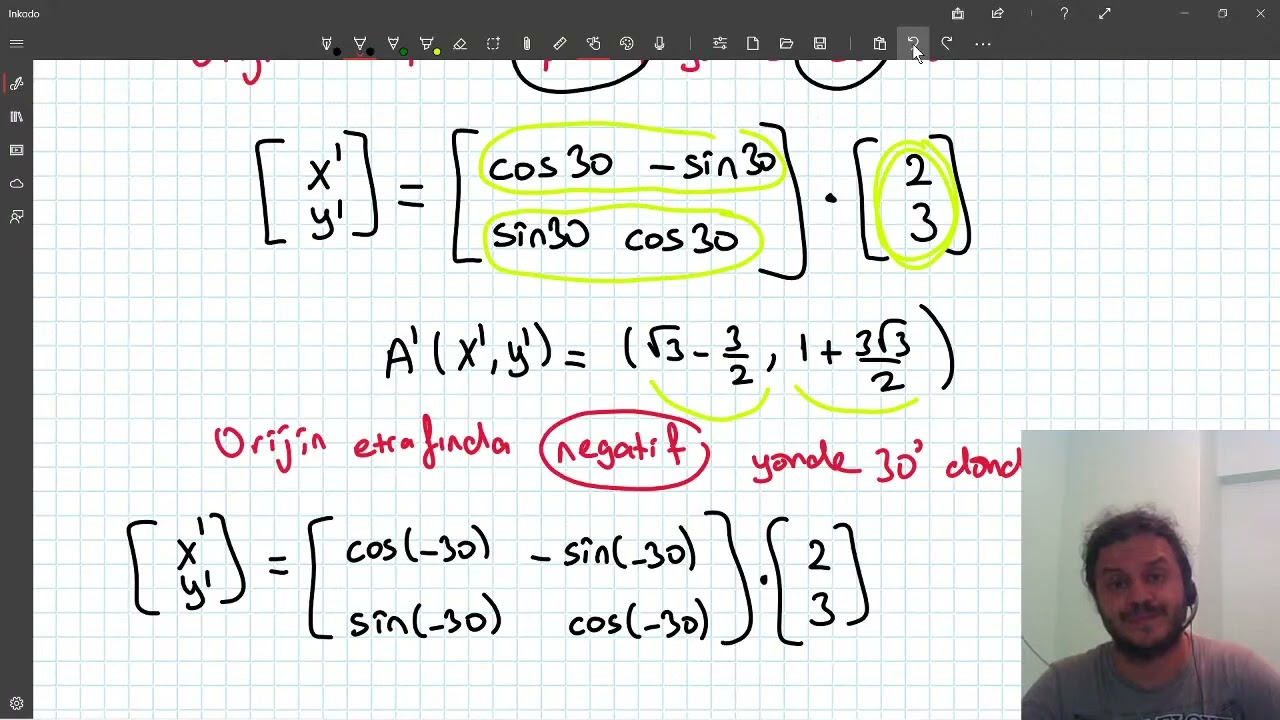 Inkado
[x' y'] = [cos30 −sin30 sin30 cos30] · [2 3]
A'(x', y') = (√3 − 3/2, 1 + 3√3/2)
Orijin etrafında negatif yönde 30° dönd
[x' y'] = [cos(−30) −sin(−30) sin(−30) cos(−30)] · [2 3]